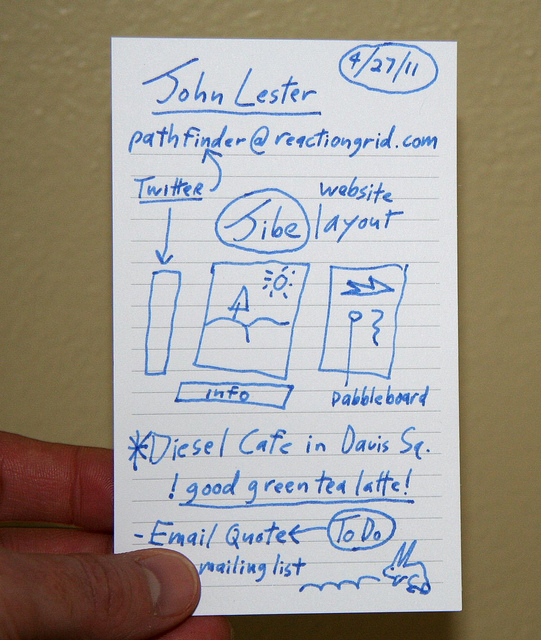 4/27/11
John Lester
pathfinder@reactiongrid.com
Twitter
Jibe
website
layout
info
Dabbleboard
*Diesel Cafe in Davis Sq.
! good green tea latte!
- Email Quote
To Do
mailing list